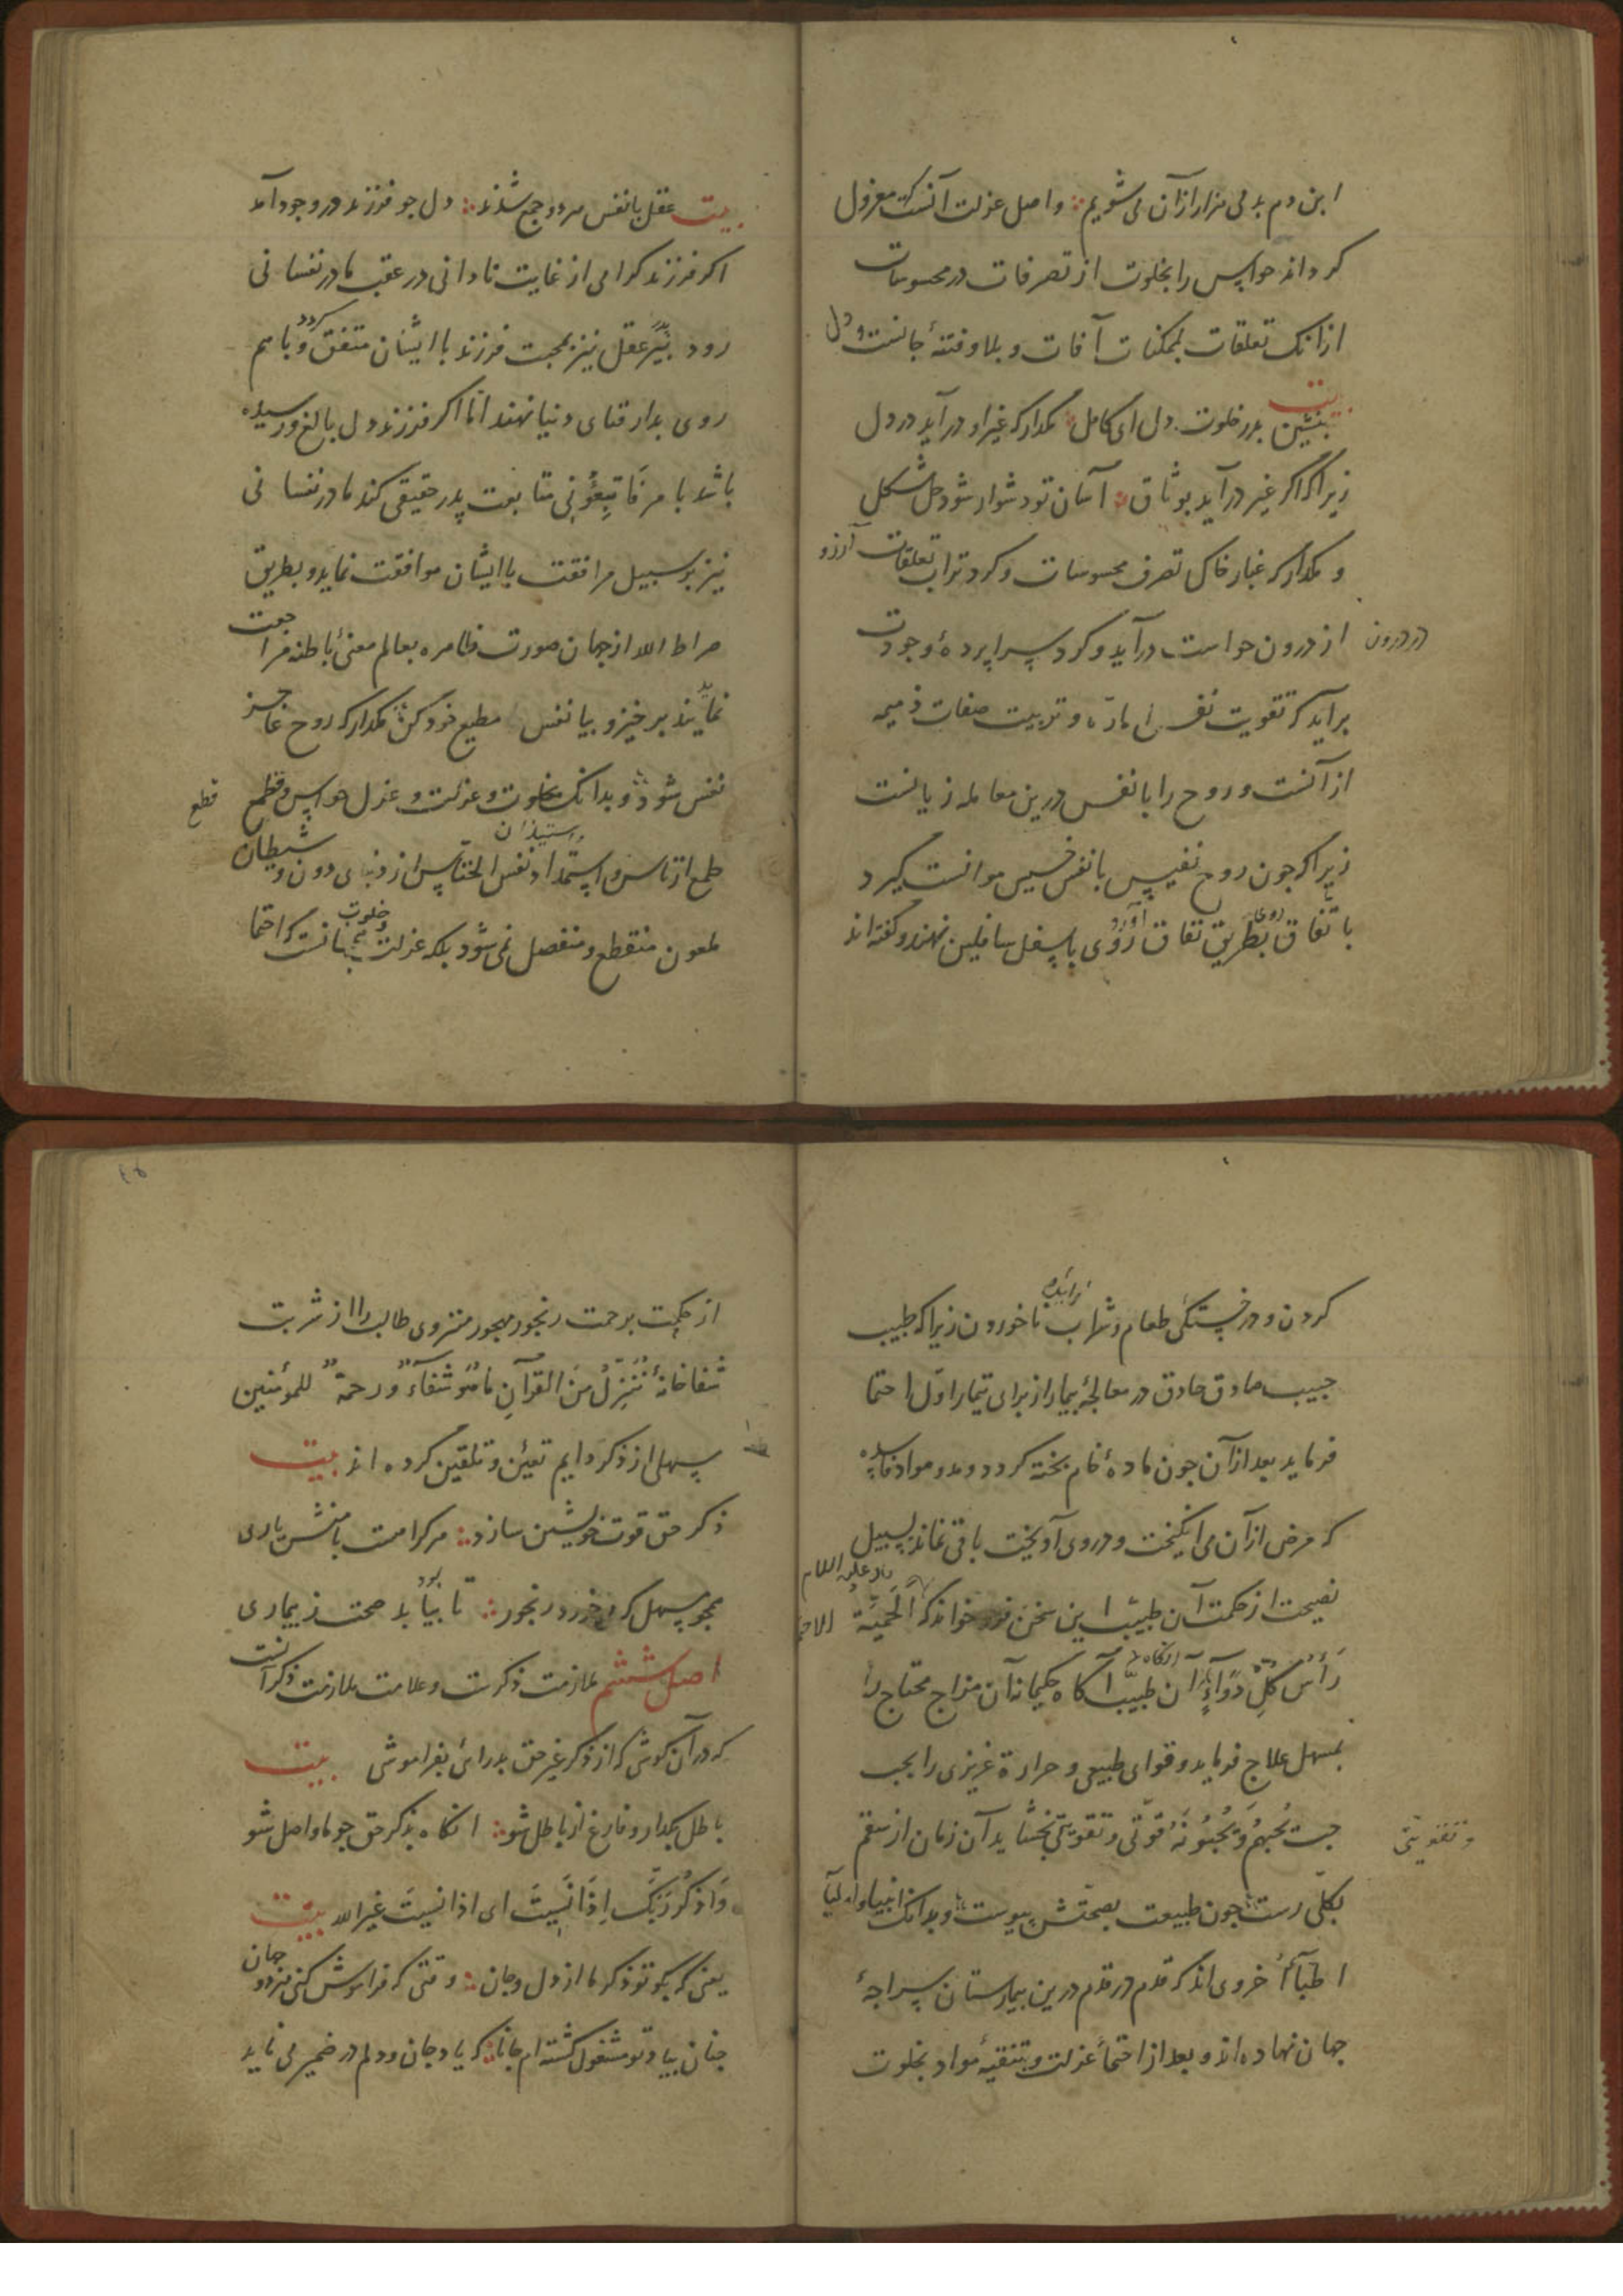 این دم بدمی هزار ازان می شویم ؞ و اصل عزلت آنست که معزول
کرداند حواس را بخلوت از تصرفات در محسوسات
ازانک تعلقات بممکنات آفات و بلا و فتنهٔ جانست و دل
بیت
بنشین بدر خلوت دل ای کامل ؞ مکذار که غیر او درآید در دل
زیرا که اکر غیر درآید بوثاق ؞ آسان تو دشوار شود حل مشکل
و مکذار که غبار خاک تصرف محسوسات و کرد تراب تعلقات آرزو
از درون حواست درآید و کرد سراپردهٔ وجودت
در درون
برآید که تقویت نفس اماره و تربیت صفات ذمیمه
ازآنست و روح را با نفس درین معامله زیانست
زیرا که جون روح نفیس با نفس خسیس موانست کیرد
باتفاق بطریق نفاق روی باسفل سافلین نهند و کفته اند
روی
آورد
بیت عقل با نفس هر دو جمع شدند ؞ دل جو فرزند در وجود آمد
اکر فرزند کرامی از غایت نادانی در عقب مادر نفسانی
رود پدر عقل نیز بمحبت فرزند با ایشان متفق کردد و با هم
روی بدار فنای دنیا نهند اما اکر فرزند دل بالغ و رسیده
باشد بامر فَاتَّبِعُونِی متابعت پدر حقیقی کند مادر نفسانی
نیز بر سبیل مرافقت با ایشان موافقت نماید و بطریق
صراط الله از جهان صورت ظاهره بعالم معنیٔ باطنه مراجعت
نمایند برخیز و بیا نفس مطیع خود کن ؞ مکذار که روح عاجز
نفس شود ؞ و بدانک بخلوت و عزلت و عزل حواس و قطع
قطع
طمع از ناس و استمداد نفس الخناس از دنیای دون و شیطان
ملعون منقطع و منفصل نمی شود بلکه عزلت و خلوت بمثابت احتما
کردن و در خستکی طعام و شراب ناخوردن زیرا که طبیب
زایده
حبیب صادق حاذق در معالجهٔ بیمار از برای تیمار اول احتما
فرماید بعد ازآن جون مادهٔ خام بخته کردد و مواد فاسده
که مرض ازآن می انکیخت و در وی آویخت باقی نماند بسبیل
نصیحت از حکمت آن طبیب این سخن فرو خواند که اَلحَمِیَّة
علیه السلام
رَأسُ کُلِّ دَوَآءٍ آن طبیب آکاه حکیمانه آن مزاج محتاج را
انکاه
بمسهل علاج فرماید و قوای طبیعی و حرارة غریزی را بحب
حبّ یُحِبُّهُم وَ یُحِبُّونَهُ قوتی و تقویتی بخشاید آن زمان از سقم
و تقویتی
بکلّی رست ؞ جون طبیعت بصحتش پیوست ؞ و بدانک انبیا و اولیا
اطبآءُ اخروی اند که قدم در قدم درین بیمارستان سراجهٔ
جهان نهاده اند و بعد از احتماءِ عزلت و تنقیهٔ مواد بخلوت
از حکمت بر حمت رنجور مهجور منزوی طالب را از شربت
شفا خانهٔ نُنَزِّلُ مِنَ القُرآنِ مَا هُوَ شِفَآءٌ وَ رحمةٌ للمؤمنین
مسهلی از ذکر دایم تعیین و تلقین کرده اند بیت
ذکر حق قوت خویشتن سازد ؞ هر کرا هست با منش یاری
همجو مسهل که می خورد رنجور ؞ تا بیابد صحت ز بیماری
اصل ششم ملازمت ذکرست و علامت ملازمت ذکر آنست
که در آن کوشی که از ذکر غیر حق بدر آیی بفراموشی بیت
باطل بکذار و فارغ از باطل شو ؞ انکاه بذکر حق جو ما واصل شو
وَاذکُر رَبَّکَ اِذَا نَسِیتَ ای اذا نسیتَ غیر الله بیت
یعنی که بکو تو ذکر ما از دل و جان ؞ وقتی که فراموش کنی هر دو جهان
جنان بیاد تو مشغول کشته ام جانا ؞ که یاد جان و دلم در ضمیر می ناید